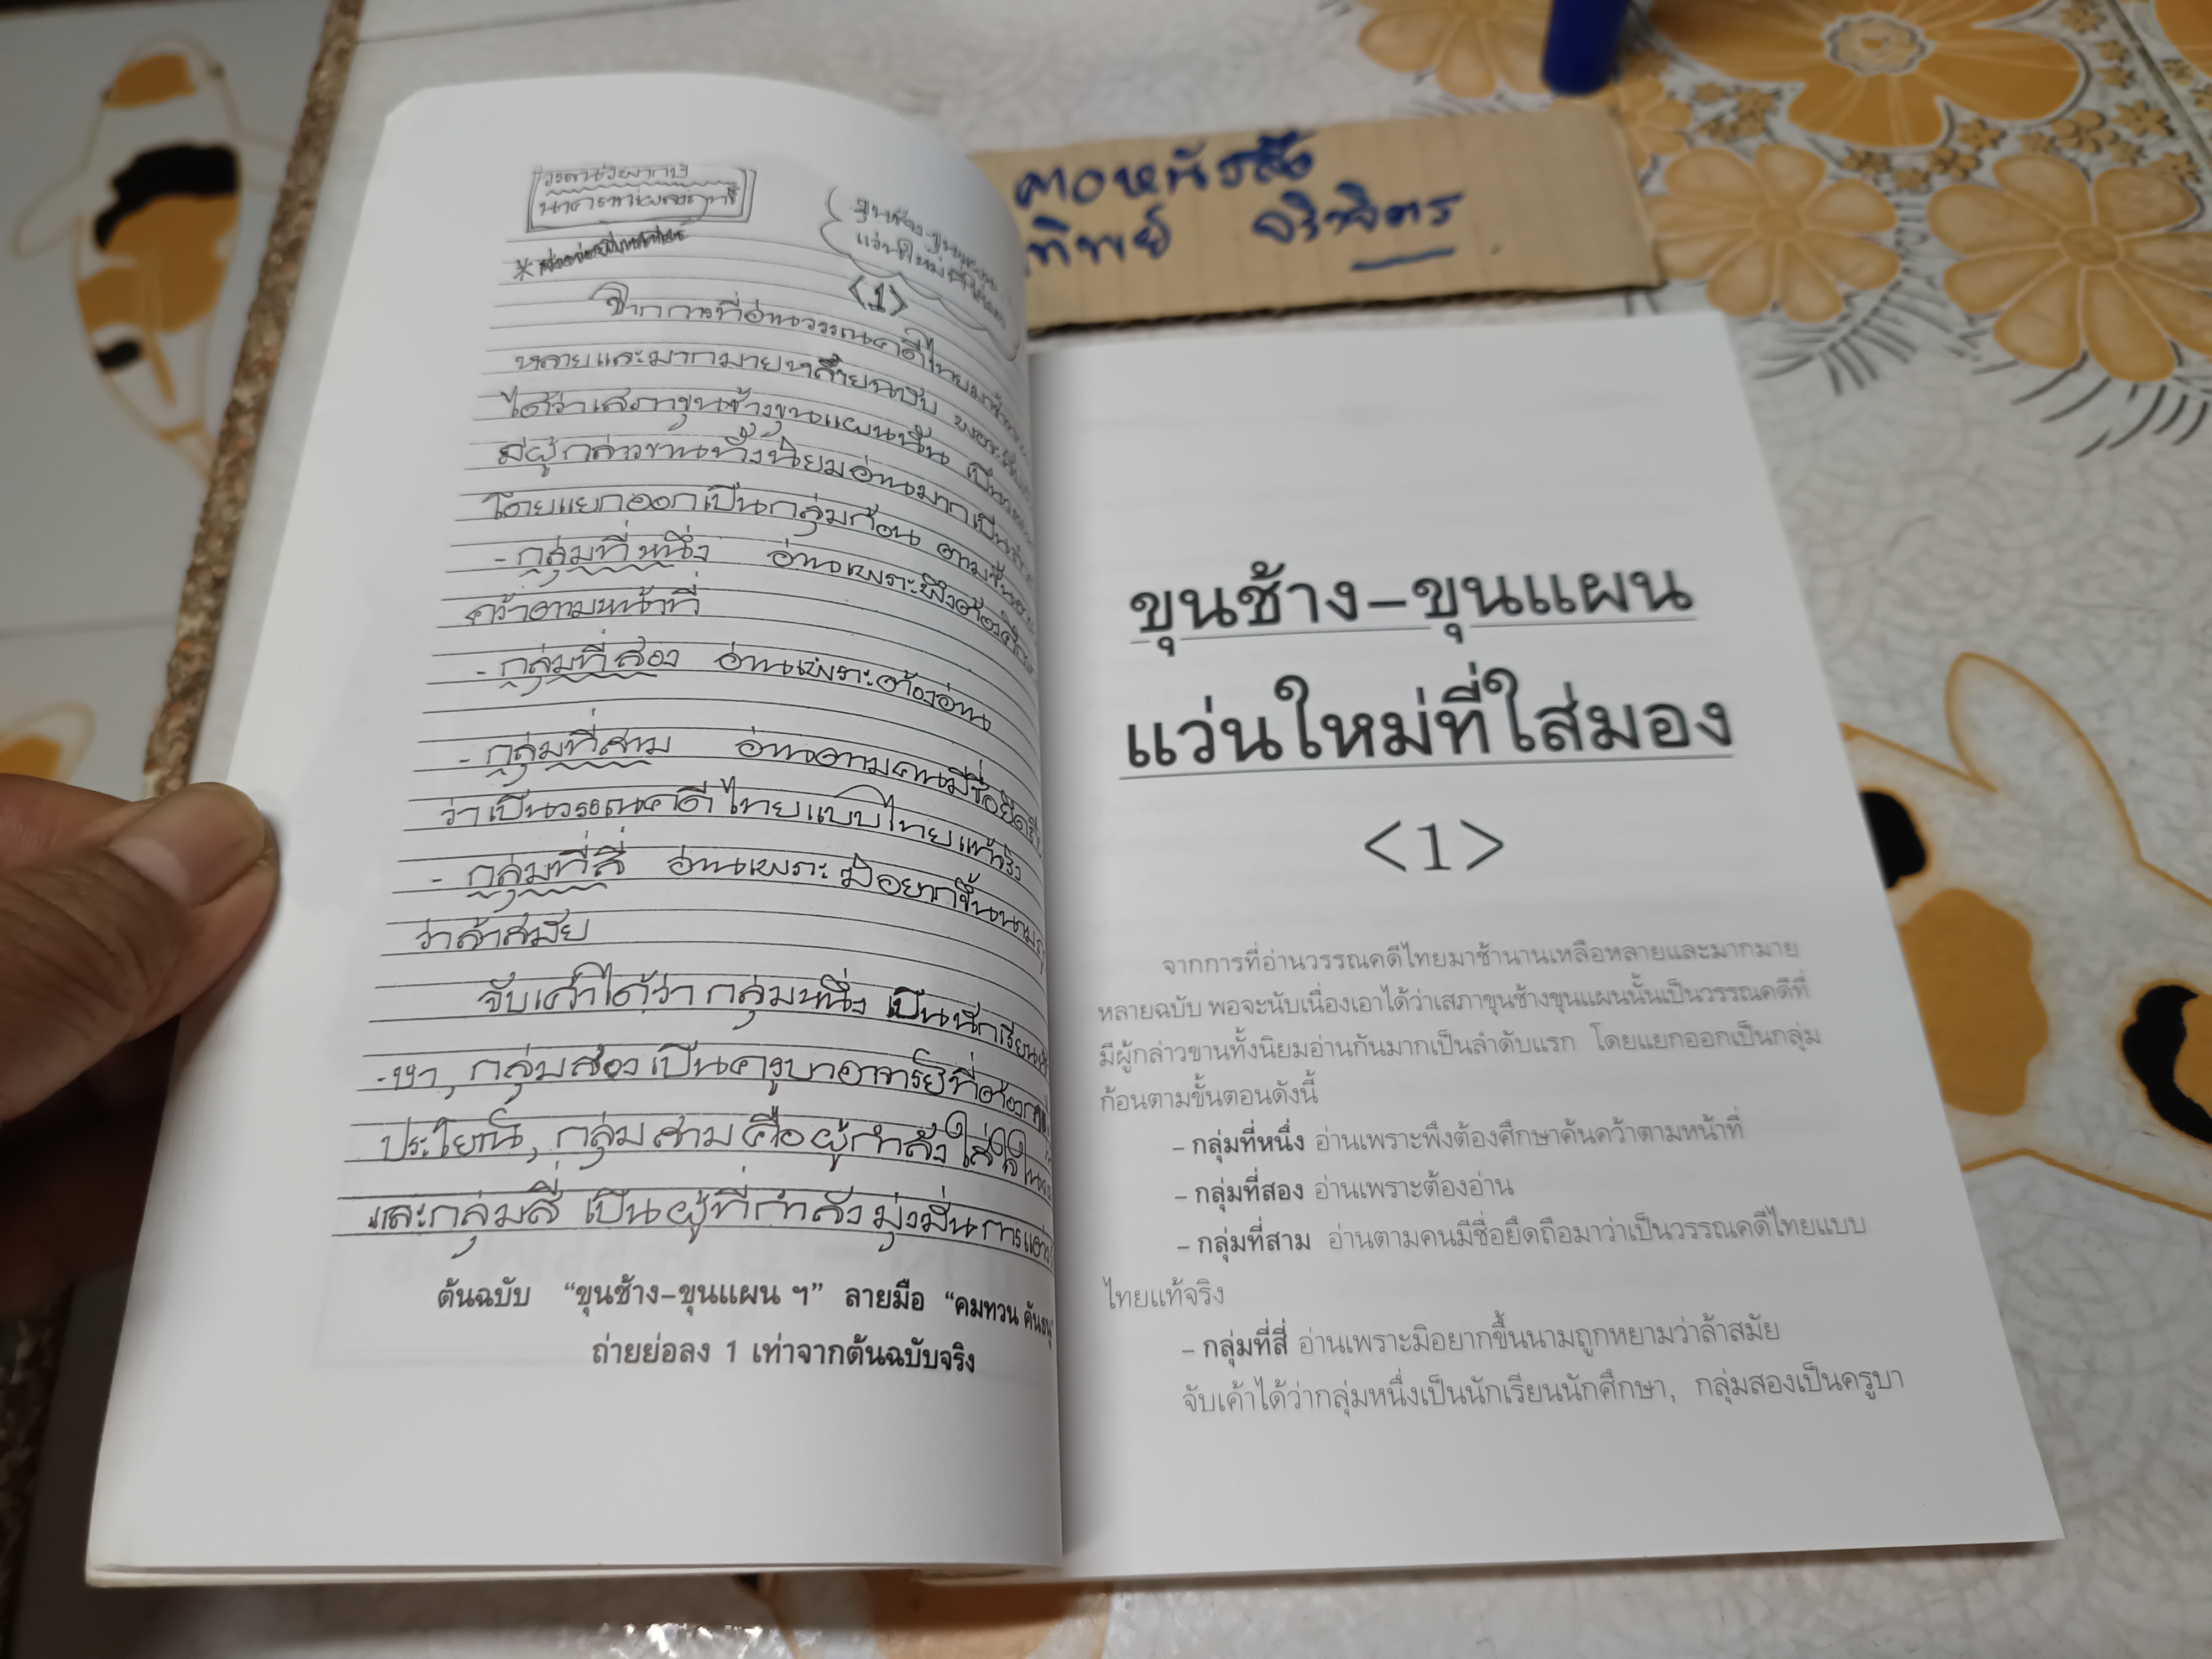 ขุนช้าง-ขุนแผน
แว่นใหม่ที่
<1>
จากการที่อ่านวรรณคดีไทยมาช้า
หลายและมากมายหลายฉบับ พอจะนับ
ได้ว่าเสภาขุนช้างขุนแผนนั้น เป็นวรรณ
มีผู้กล่าวขานทั้งนิยมอ่านมากเป็น
โดยแยกออกเป็นกลุ่มก้อน ตามขั้น
- กลุ่มที่หนึ่ง อ่านเพราะพึงต้องศึกษา
คว้าตามหน้าที่
- กลุ่มที่สอง อ่านเพราะต้องอ่าน
- กลุ่มที่สาม อ่านตามคนมีชื่อยึดถือ
ว่าเป็นวรรณคดีไทยแบบไทยแท้จริง
- กลุ่มที่สี่ อ่านเพราะมิอยากขึ้นนามถู
ว่าล้าสมัย
จับเค้าได้ว่า กลุ่มหนึ่ง เป็นนักเรียนนัก
-ษา, กลุ่มสองเป็นครูบาอาจารย์ที่ต้อง
ประโยชน์, กลุ่มสามคือผู้กำลังใส่ใจใน
และกลุ่มสี่ เป็นผู้ที่กำลังมุ่งมั่นการ
ต้นฉบับ “ขุนช้าง-ขุนแผน ฯ” ลายมือ “คมทวน คันธนู”
ถ่ายย่อลง 1 เท่าจากต้นฉบับจริง
ทิพย์ จริงจิตร
ขุนช้าง-ขุนแผน
แว่นใหม่ที่ใส่มอง
<1>
จากการที่อ่านวรรณคดีไทยมาช้านานเหลือหลายและมากมาย
หลายฉบับ พอจะนับเนื่องเอาได้ว่าเสภาขุนช้างขุนแผนนั้นเป็นวรรณคดีที่
มีผู้กล่าวขานทั้งนิยมอ่านกันมากเป็นลำดับแรก โดยแยกออกเป็นกลุ่ม
ก้อนตามขั้นตอนดังนี้
- กลุ่มที่หนึ่ง อ่านเพราะพึงต้องศึกษาค้นคว้าตามหน้าที่
- กลุ่มที่สอง อ่านเพราะต้องอ่าน
- กลุ่มที่สาม อ่านตามคนมีชื่อยึดถือมาว่าเป็นวรรณคดีไทยแบบ
ไทยแท้จริง
- กลุ่มที่สี่ อ่านเพราะมิอยากขึ้นนามถูกหยามว่าล้าสมัย
จับเค้าได้ว่ากลุ่มหนึ่งเป็นนักเรียนนักศึกษา, กลุ่มสองเป็นครูบา